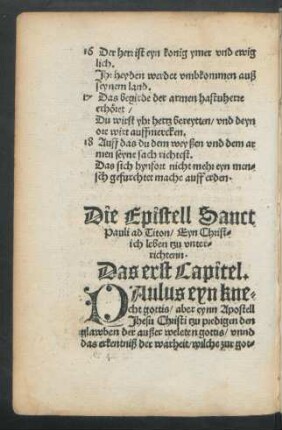 16 Der herr ist eyn konig ymer vnd ewig
lich.
Jhr heyden werdet vmbkommen auß
seynem land.
17 Das begirde der armen hastu herre
erhöret /
Du wirst yhr hertz bereyten / vnd deyn
ore wirt auffmercken.
18 Auff das du dem weyßen vnd dem ar
men seyne sach richtest.
Das sich hynfort nicht mehr eyn men-
sch gefurchtet mache auff erden.
Die Epistell Sanct
Pauli ad Titon / Eyn Christ-
ich leben tzu vnter-
richtenn.
Das erst Capitel.
PAulus eyn kne-
cht gottis / aber eynn Apostell
Jhesu Christi tzu predigen den
glawben der außer weleten gottis / vnnd
das erkentniß der warheit / wilche zur got-